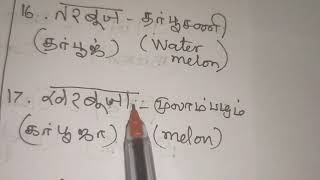 16. तरबूज - தர்பூசணி
(தர்பூஜ்) (Water melon)
17. खरबूजा - முலாம்பழம்
(கர்பூஜா) (melon)